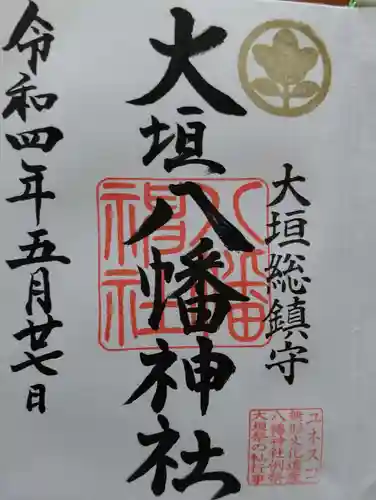 大垣総鎮守
大垣八幡神社
令和四年五月廿七日
八幡神社
ユネスコ
無形文化遺産
八幡神社例祭
大垣祭の軕行事